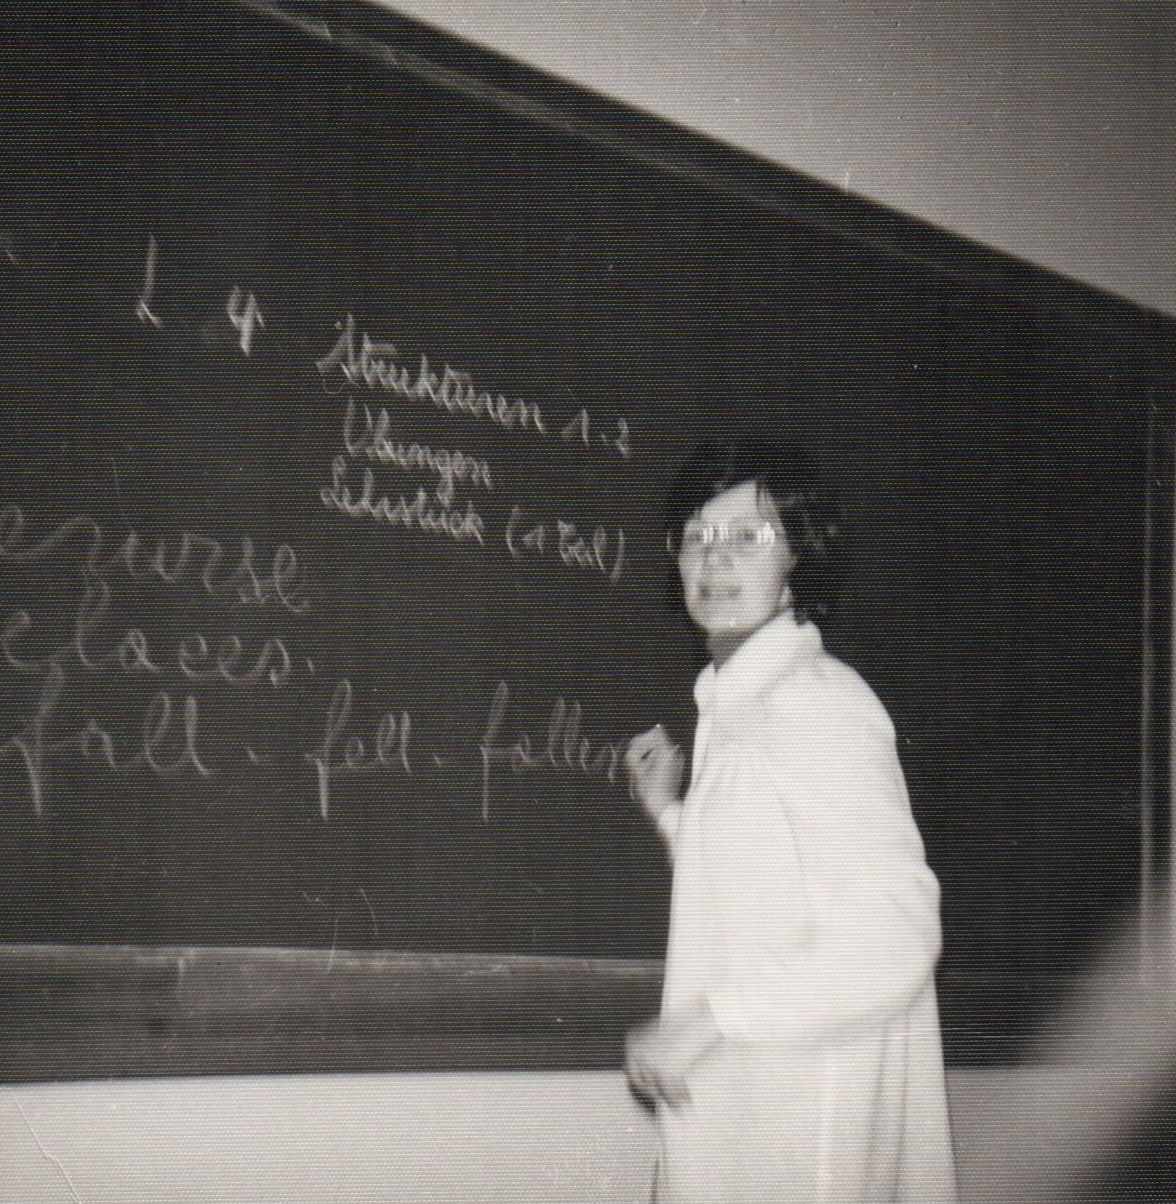 L 4 Strukturen 1-3
Übungen
Lehrstück (1 Teil)
nurse
places.
fall - fell - fallen